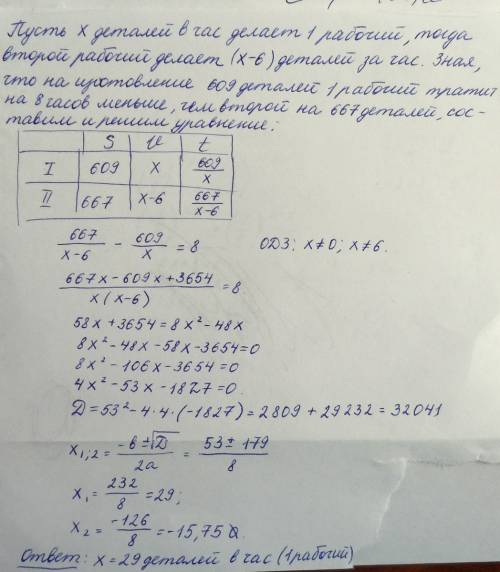 Пусть x деталей в час делает 1 рабочий, тогда
второй рабочий делает (x-6) деталей за час. Зная,
что на изготовление 609 деталей 1 рабочий тратит
на 8 часов меньше, чем второй на 667 деталей, сос-
тавим и решим уравнение:
S v t
I 609 x 609/x
II 667 x-6 667/(x-6)
667/(x-6) - 609/x = 8 ОДЗ: x≠0; x≠6.
(667x-609x+3654)/(x(x-6)) = 8
58x+3654=8x²-48x
8x²-48x-58x-3654=0
8x²-106x-3654=0
4x²-53x-1827=0.
D=53²-4·4·(-1827)=2809+29232=32041
x₁;₂ = (-b±√D)/2a = (53±179)/8
x₁=232/8=29;
x₂=-126/8=-15,75
Ответ: x=29 деталей в час (1 рабочий)